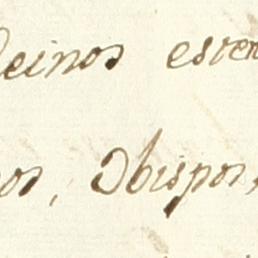 Reinos esten
os, Obispos,